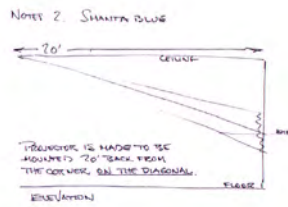 NOTES 2. SHANTA BLUE
20'
CEILING
PROJECTOR IS MADE TO BE
MOUNTED 20' BACK FROM
THE CORNER, ON THE DIAGONAL.
FLOOR
ELEVATION